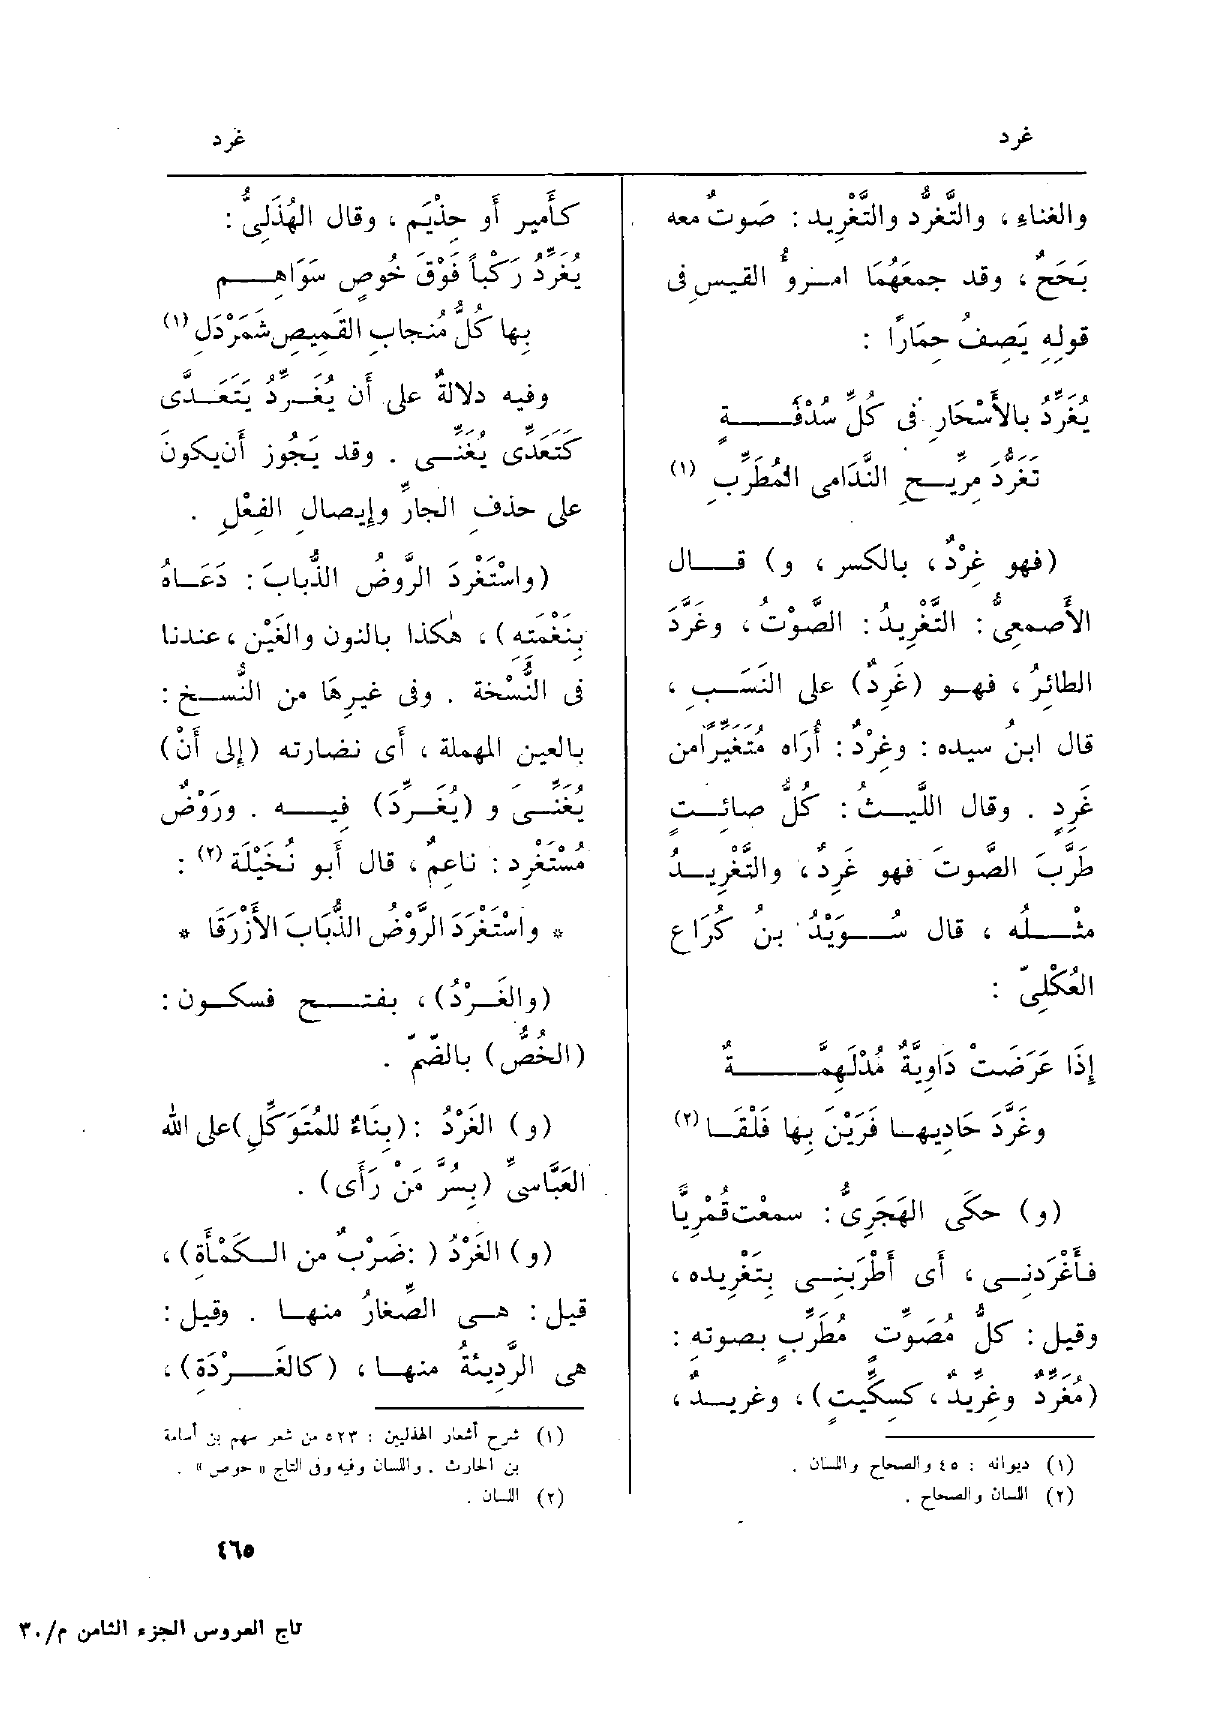 غرد
غرد
والغناءِ ، والتَّغرُّد والتَّغْرِيد : صَوتٌ معه
بَحَحٌ ، وقد جمعَهُمَا امــرؤُ القيسِ فى
قولِهِ يَصِفُ حِمَارًا :
يُغَرِّدُ بالأَسْحَارِ فى كُلِّ سُدْفَــــةٍ
تَغَرُّدَ مِرِّيــحِ النَّدَامى المُطَرِّبِ (١)
(فهو غِرْدٌ، بالكسر ، و) قــال
الأَصمعىُّ : التَّغْرِيدُ : الصَّوْتُ ، وغَرَّدَ
الطائِرُ ، فهــو (غَرِدٌ) على النَسَــبِ ،
قال ابنُ سيده : وغِرْدٌ : أُرَاه مُتَغيِّرًا من
غَرِدٍ . وقال اللَّيــثُ : كُلُّ صائِــتٍ
طَرَّبَ الصَّوتَ فهو غَرِدٌ ، والتَّغْرِيــدُ
مثْــلُه ، قال سُــوَيْدُ بنُ كُرَاع
العُكْلِىّ :
إِذَا عَرَضَتْ دَاوِيَّةٌ مُدْلَهِمَّــــةٌ
وغَرَّدَ حَادِيهــا فَرَيْنَ بِها فَلْقَــا (٢)
(و) حكَى الهَجَرِىُّ : سمعْت قُمْرِيًّا
فأَغْرَدنِــى ، أَى أَطْرَبَنِــى بِتَغْرِيده ،
وقيل : كلُّ مُصَوِّتٍ مُطَرِّبٍ بصوتِهِ :
(مُغَرِّدٌ وغِرِّيدٌ ، كسِكِّيتٍ) ، وغَرِيــدٌ ،
(١) ديوانه : ٤٥ والصحاح واللسان .
(٢) اللسان والصحاح .
كأَمير أَو حِذْيَم ، وقال الهُذَلِىُّ :
يُغَرِّدُ رَكْباً فَوْقَ خُوصٍ سَوَاهِــمٍ
بِها كُلُّ مُنجابِ القَمِيصِ شَمَرْدَلِ (١)
وفيه دلالةٌ على أَن يُغَــرِّدُ يَتَعَــدَّى
كتَعَدِّى يُغَنِّــى . وقد يَجُوز أَن يكون
على حذفِ الجارِّ وإِيصالِ الفِعْلِ .
(واسْتَغْرَدَ الرَّوْضُ الذُّبابَ : دَعَــاهُ
بِنَغْمَتِه) ، هٰكذا بالنون والغَيْن ، عندنا
فى النُّسْخَة . وفى غيرِهَا من النُّسَــخ :
بالعين المهملة ، أَى نضارته (إِلى أَنْ)
يُغَنِّــىَ و (يُغَــرِّدَ) فِيــه . ورَوْضٌ
مُسْتَغْرِد : ناعِمٌ ، قال أَبو نُخَيْلَة (٢) :
* واسْتَغْرَدَ الرَّوْضُ الذُّبَابَ الأَزْرَقَا *
(والغَــرْدُ) ، بفتــح فسكــون :
(الخُصُّ) بالضّمّ .
(و) الغَرْدُ : (بِنَاءٌ للمُتَوَكِّلِ) على الله
العَبَّاسىِّ (بِسُرَّ مَنْ رَأَى) .
(و) الغَرْدُ ( : ضَرْبٌ من الــكَمْأَةِ) ،
قيل : هــى الصِّغارُ منهــا . وقيل :
هى الرَّدِيئةُ منهــا ، (كالغَــرْدَةِ) ،
(١) شرح أشعار الهذليين : ٥٢٣ من شعر سهم بن أسامة
بن الحارث . واللسان وفيه وفى التاج « حوص » .
(٢) اللسان .
٤٦٥
تاج العروس الجزء الثامن م/٣٠